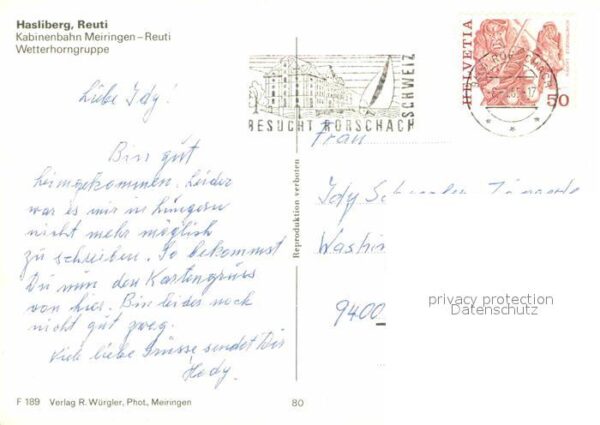 Hasliberg, Reuti
Kabinenbahn Meiringen – Reuti
Wetterhorngruppe
Liebe Idy!
Bin gut
heimgekommen. Leider
war es mir in Lungern
nicht mehr möglich
zu schreiben. So bekommst
Du nun den Kartengruss
von hier. Bin leider noch
nicht gut zweg.
Viele liebe Grüsse, sendet Dir
Hedy.
F 189 Verlag R. Würgler, Phot., Meiringen
80
Reproduktion verboten
BESUCHT RORSCHACH
SCHWEIZ
HELVETIA
50
Frau
Idy
9400
privacy protection
Datenschutz